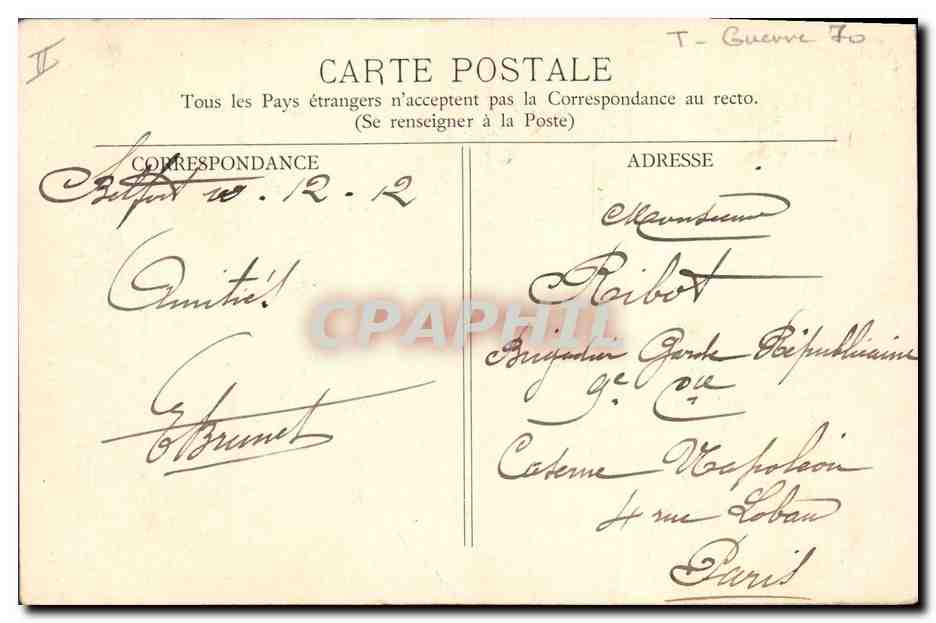 II
T - Guerre 70
CARTE POSTALE
Tous les Pays étrangers n'acceptent pas la Correspondance au recto.
(Se renseigner à la Poste)
CORRESPONDANCE
Belfort 10 - 12 - 12
Amitiés
EBrunet
ADRESSE
Monsieur
Ribot
Brigadier Garde Républicaine
9e Cie
Caserne Napoléon
4 rue Lobau
Paris
CPAPHIL